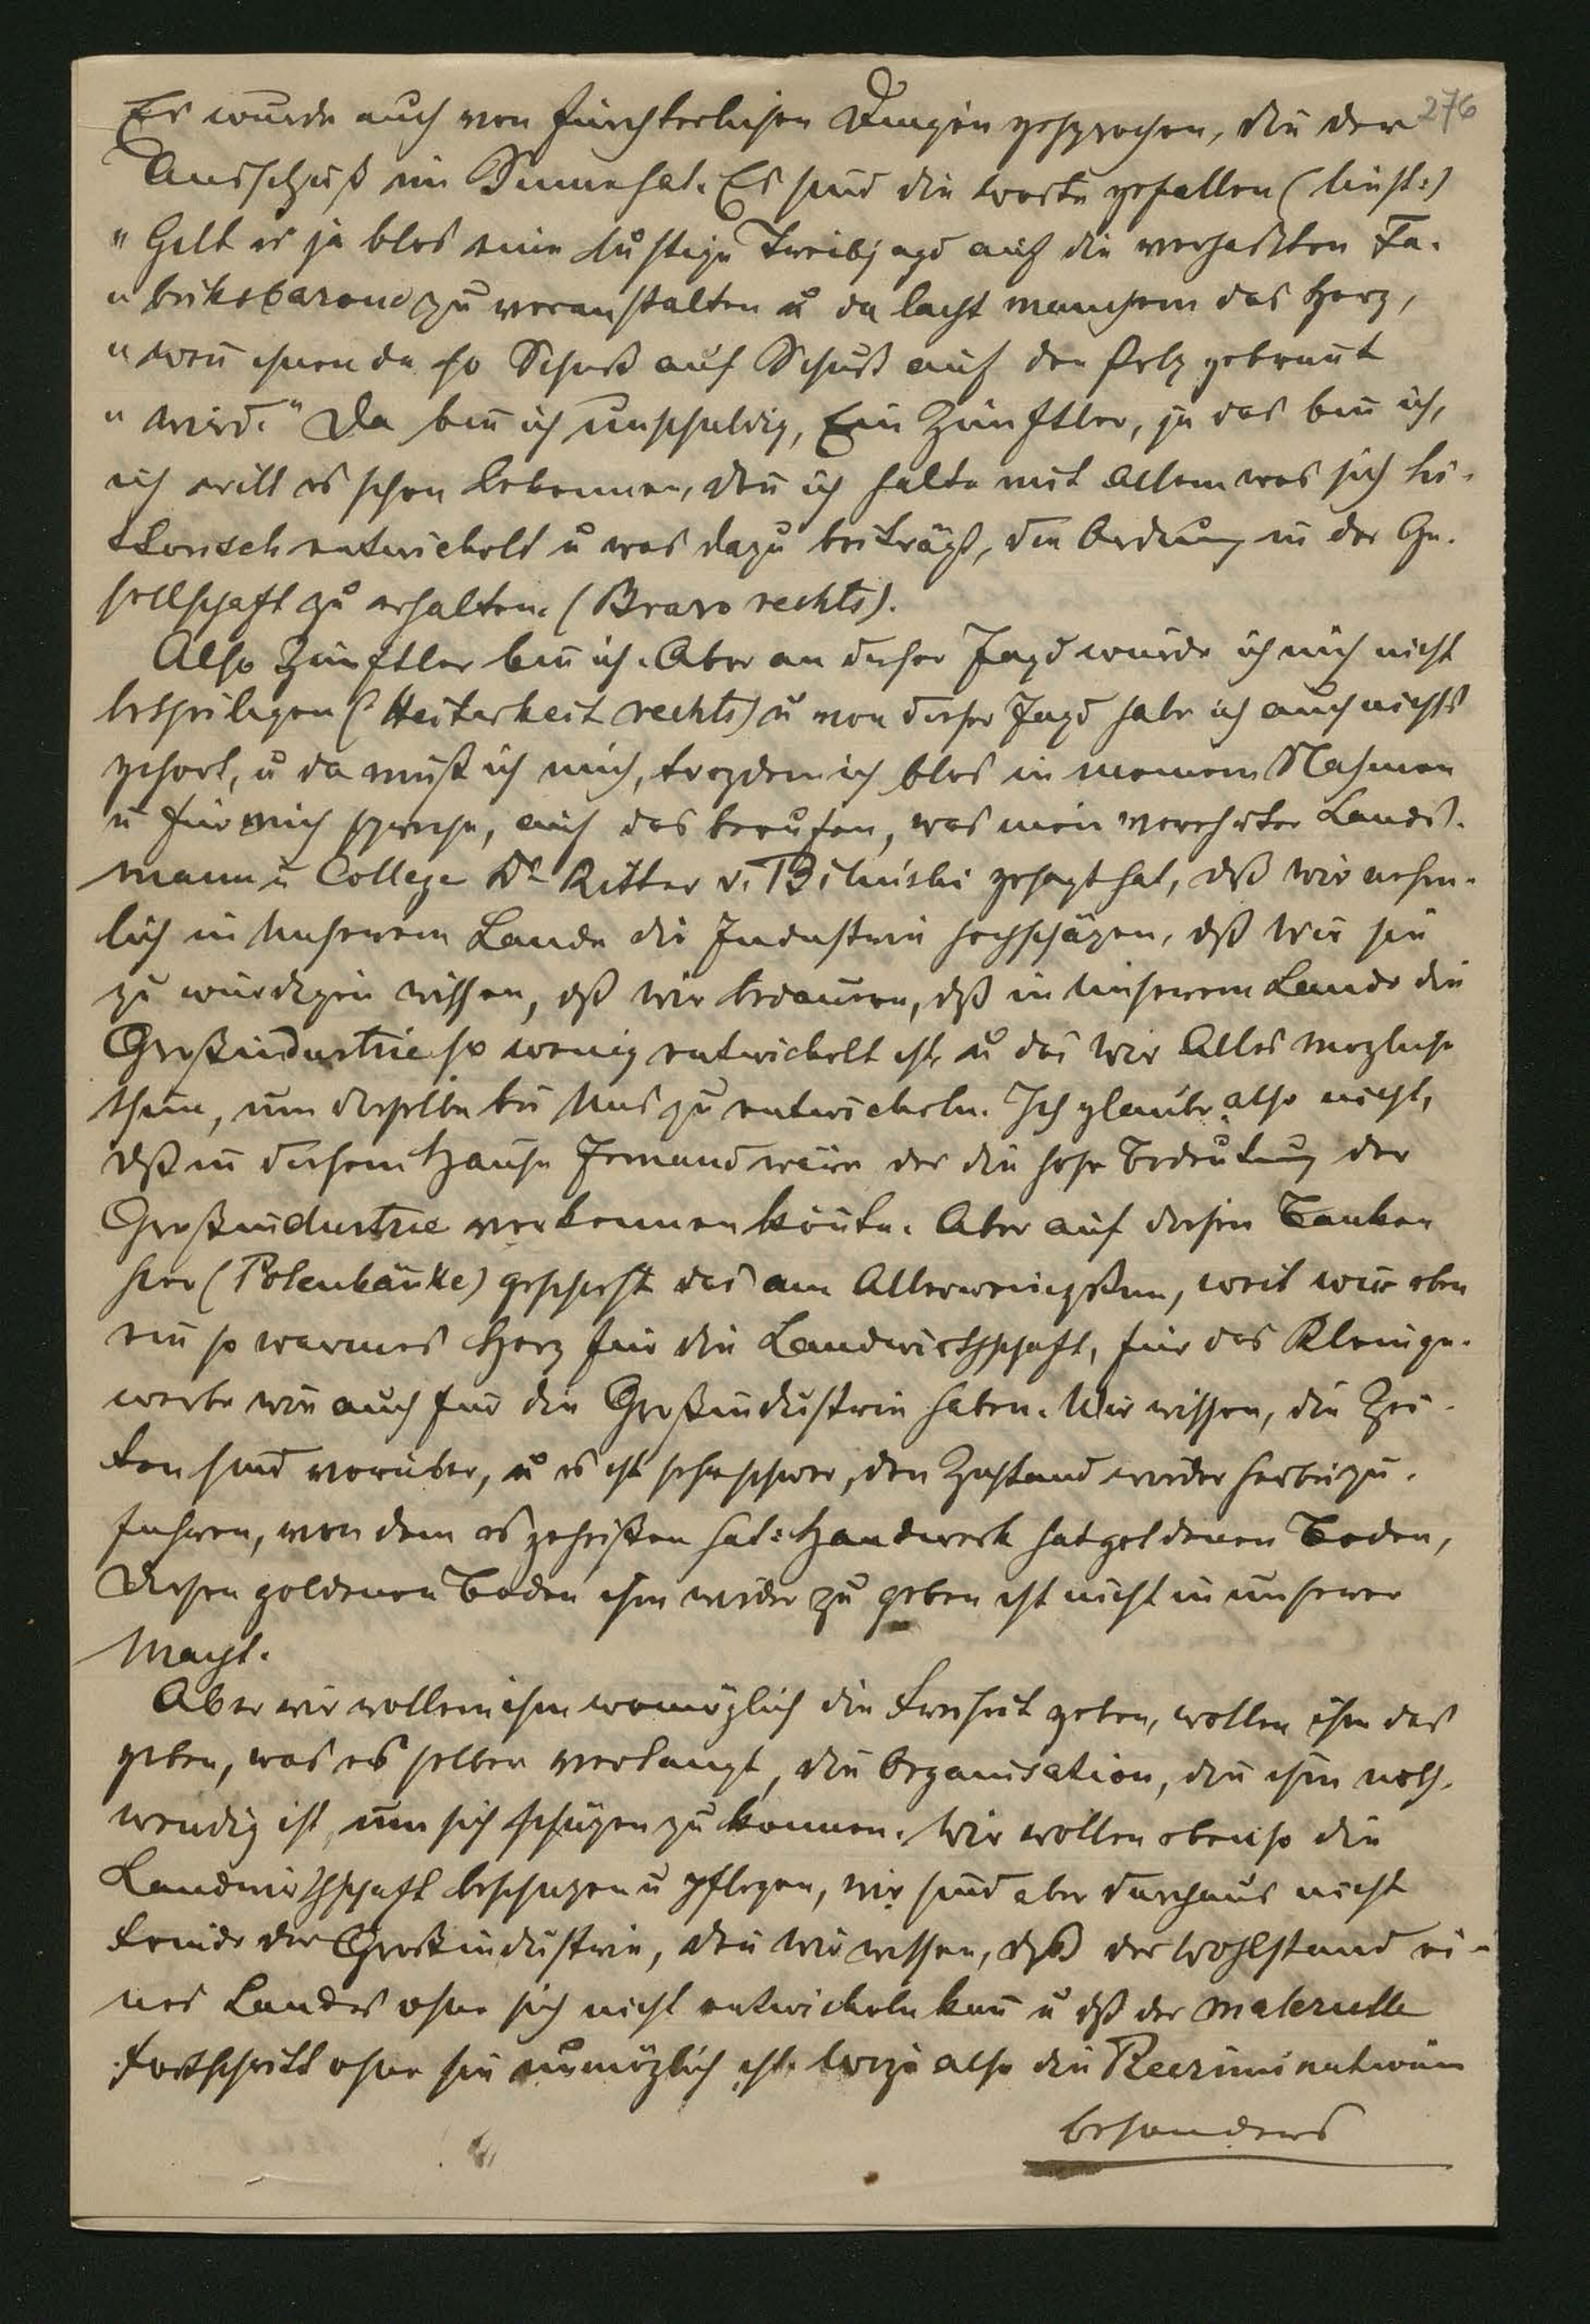 Es wurde auch von fürchterlichen Dingen gesprochen, die der 276
Ausschuß im Sinne hat. Es sind die Worte gefallen (liest:)
„Gilt es ja blos eine lustige Treibjagd auf die verhassten Fa-
„briksbarone zu veranstalten u da lacht manchem das Herz,
„wen̄ ihnen da so Schuß auf Schuß auf den Pelz gebrannt
„wird." Da bin̄ ich unschuldig, Ein Zünftler, ja das bin̄ ich,
ich will es schon bekennen, den̄ ich halte mit Allem was sich his-
torisch entwickelt u was dazu beiträgt, die Ordnung in der Ge-
sellschaft zu erhalten. (Bravo rechts).
Also Zünftler bin̄ ich. Aber an dieser Jagd würde ich mich nicht
betheiligen (Heiterkeit rechts) u von dieser Jagd habe ich auch nichts
gehört, u da muß ich mich, trozdem ich blos in meinem Nahmen
u für mich spreche, auf das berufen, was mein verehrter Lands-
mann u College Dr Ritter v. Biliński gesagt hat, dß wir nehm-
lich in unserem Lande die Industrie hochschäzen, dß wir sie
zu würdigen wissen, dß wir bedauern, dß in unserem Lande die
Großindustrie so wenig entwickelt ist u das wir Alles mögliche
thun, um dieselbe bei uns zu entwickeln. Ich glaube also nicht,
dß in diesem Hause Jemand wäre der die hohe Bedeutung der
Großindustrie verkennen kön̄te. Aber auf diesen Bänken
hier (Polenbänke) geschieht das am Allerwenigsten, weil wir eben
ein so warmes Herz für die Landwirthschaft, für das Kleinge-
werbe wie auch für die Großindustrie haben. Wir wissen, die Zei-
ten sind vorüber, u es ist sehr schwer, den Zustand wieder herbeizu-
führen, von dem es geheißen hat: Handwerk hat goldenen Boden,
Diesen goldenen Boden ihm wieder zu geben ist nicht in unserer
Macht.
Aber wir wollen ihm womöglich die Freiheit geben, wollen ihm das
geben, was es selber verlangt, die Organisation, die ihm noth-
wendig ist, um sich schüzen zu können. Wir wollen ebenso die
Landwirthschaft beschüzen u pflegen, wir sind aber durchaus nicht
Feinde der Großindustrie, den̄ wir wissen, dß der Wohlstand ei-
nes Landes ohne sie nicht entwickeln kan̄ u dß der materielle
Fortschritt ohne sie unmöglich ist. Wozu also die Recriminationen
besonders